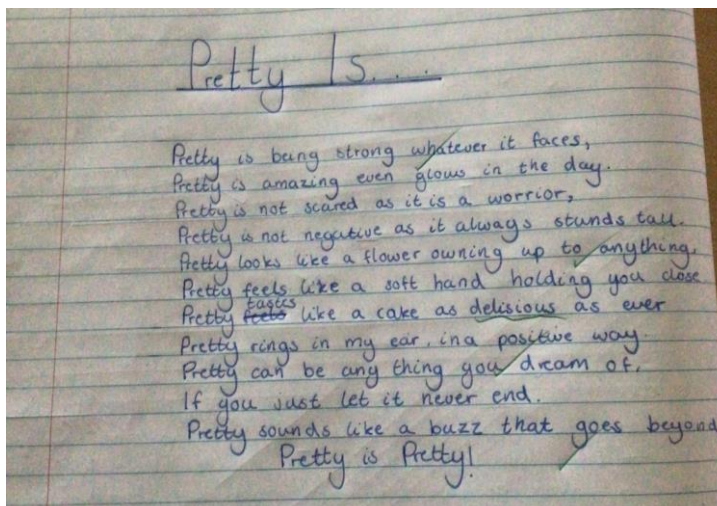 Pretty Is....
Pretty is being strong whatever it faces,
Pretty is amazing even glows in the day.
Pretty is not scared as it is a worrior,
Pretty is not negative as it always stands tall.
Pretty looks like a flower owning up to anything.
Pretty feels like a soft hand holding you close
Pretty feels tastes like a cake as delisious as ever
Pretty rings in my ear, in a positive way.
Pretty can be any thing you dream of,
If you just let it never end.
Pretty sounds like a buzz that goes beyond
Pretty is Pretty!